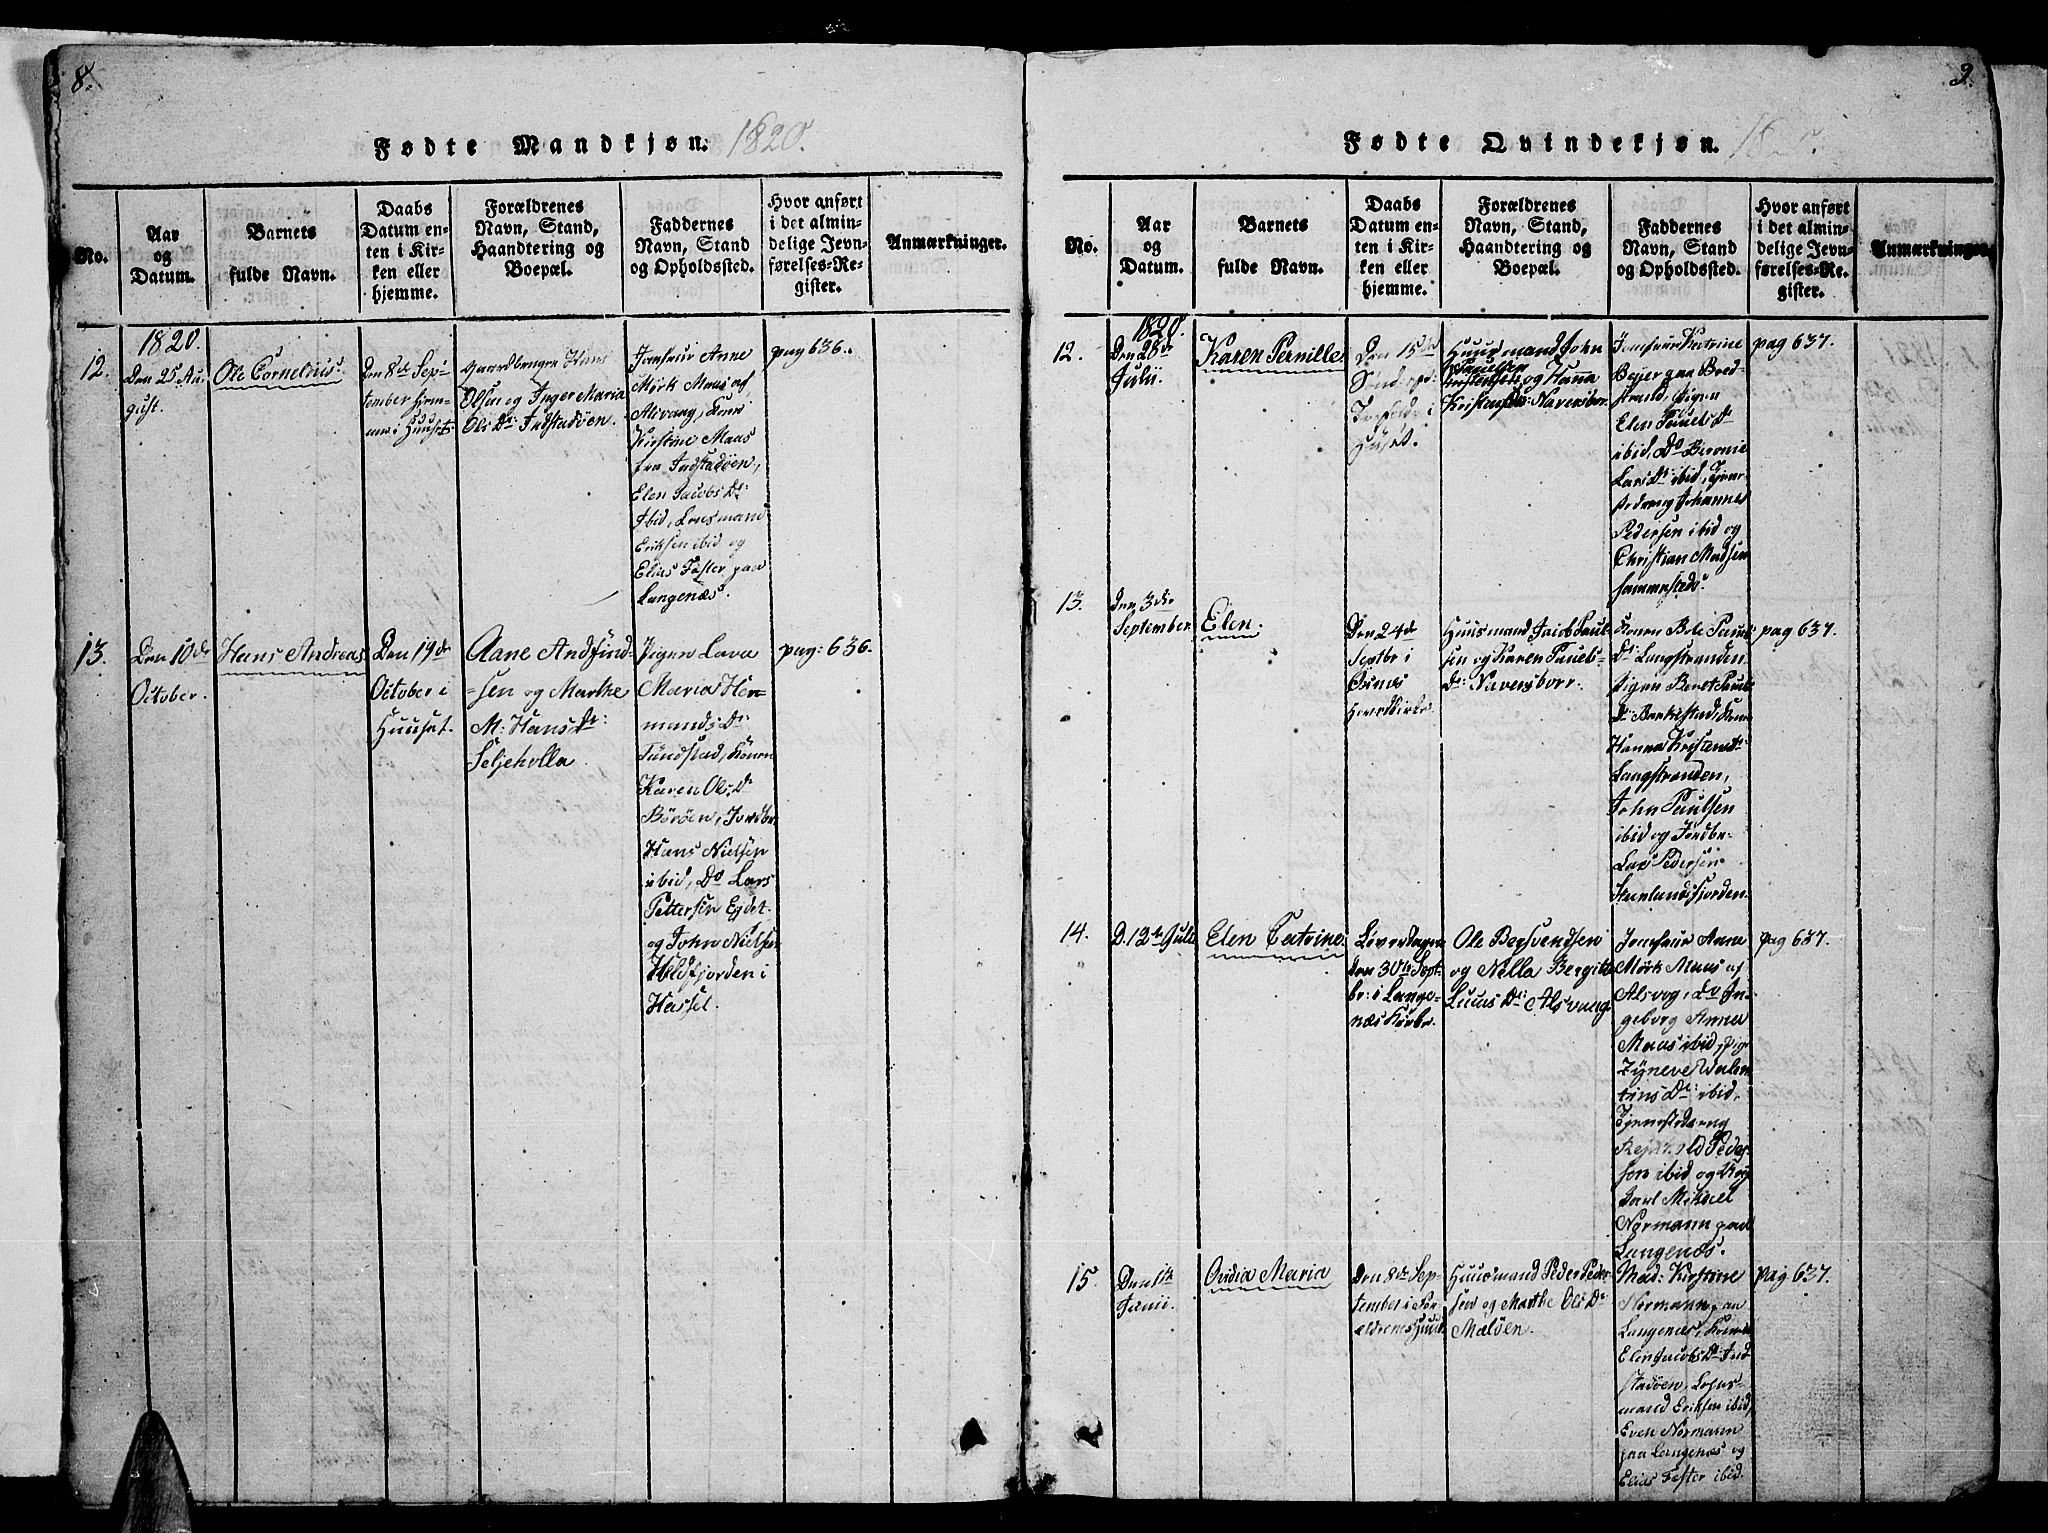 8.
Fødte Mandkjøn. 1820.
No.
Aar
og
Datum.
Barnets
fulde Navn.
Daabs
Datum en-
ten i Kir-
ken eller
hjemme.
Forældrenes
Navn, Stand,
Haandtering og
Boepæl.
Faddernes
Navn, Stand
og Opholdssted.
Hvor anført
i det almin-
delige Jevn-
førelses-Re-
gister.
Anmærkninger.
12.
1820.
Den 25 Au-
gust.
Ole Cornelius.
Den 8de Sep-
tember hjem-
me i Huuset.
Hans
Olsen og Inger Maria
Ols Dr: Indstadöen.
Jomfrue Anne
Mörk Maas af
Alsvang, Kone
Kirstine Maas
fra Indstadöen,
Elen Jacobs Dr:
Ibid,
Eriksen ibid og
Elias Falster paa
Langenæs.
pag 636.
13.
Den 10de
October.
Hans Andreas
Den 19de
October i
Huuset.
Aane Andfind-
sen og Marthe
M: Hans Dr:
Seljeholla
Pigen Lava
Maria Her-
mands Dr:
Tundstad, Konen
Karen Ols Dr
Böröen, Jordbr.
Hans Nielsen
ibid, Do Lars
Pettersen
og John Nielsen
Hildfjorden i
Hassel.
pag: 636.
9.
Fødte Qvindekjøn.
No.
Aar
og
Datum.
Barnets
fulde Navn.
Daabs
Datum en-
ten i Kir-
ken eller
hjemme.
Forældrenes
Navn, Stand,
Haandtering og
Boepæl.
Faddernes
Navn, Stand
og Opholdssted.
Hvor anført
i det almin-
delige Jevn-
førelses-Re-
gister.
Anmærkninger
12.
1820.
Den 28de
Julii.
Karen Pernille
Den 15de
i
Huset.
Huusmand John
Paulsen
og Hanna
Naversbor.
Jomfrue
Beyer paa Bred-
strand, Pigen
Elen Pauels Dr
ibid, Do
Lars Dr ibid,
Johannes
Pedersen ibid og
Christian Madsen
sammesteds.
pag 637.
13.
Den 3die
September
Elen.
Den 24de
Septbr i
Öxnes
Huusmand Jacob Paul-
sen og Karen Pauels-
Dr: Naversborr.
Konen
Dr: Langstranden
Pigen Beret Pauels
Dr: Barkestad, Kone
Hanna
Langstranden,
John Paulsen
ibid og Jordbr.
Lars Pedersen
Steenlandsfjorden.
pag 637.
14.
D. 12te Julii
Elen Catrine
Löverdagen
Den 30te Sept-
br: i Lange-
næs
Ole Bersvendsen
og Nella Bergitte
Lucas Dr: Alsvaag
Jomfrue Anne
Mörk Maas af
Alsvog, Do In-
geborg Anna
Maas ibid, Pige
Zyneve Walen-
tins Dr: ibid,
Tjenestedreng
Peder-
sen ibid og
Mikael
Normann paa
Langenæs.
pag 637.
15.
Den 1ste
Junii.
Ovidia Maria
Den 8de Sep-
tember i For-
ældrenes Huus
Huusmand Peder Peder-
sen og Marthe Ols Dr
Malöen.
Mad: Kirstine
Normann paa
Langenæs, Kone
Elen Jacobs Dr Ind-
stadöen,
mand Eriksen ibid,
Even Normann
paa Langenæs og
Elias Falster ibid.
pag 637.